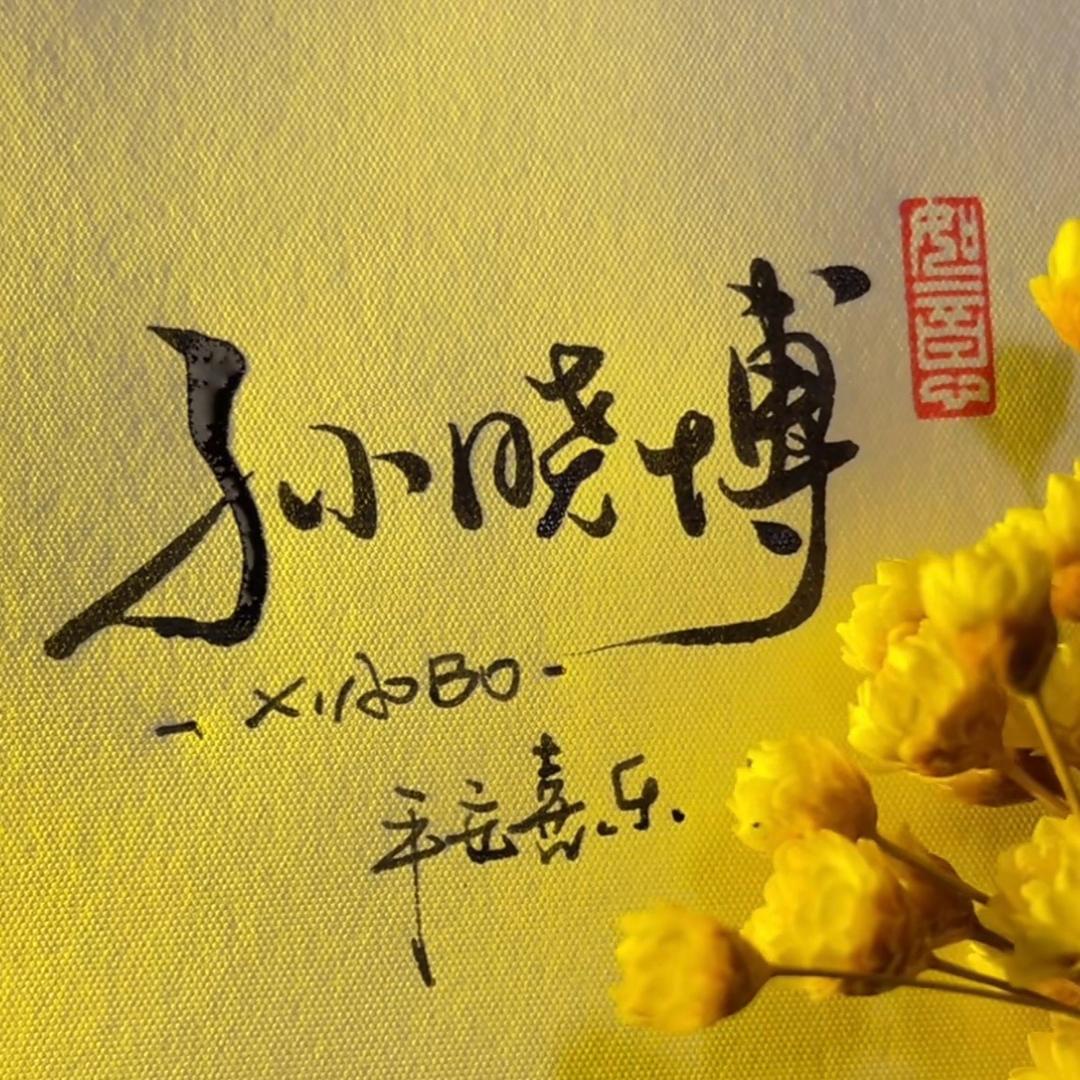 孙晓博
- XiAoBo -
平安喜乐.